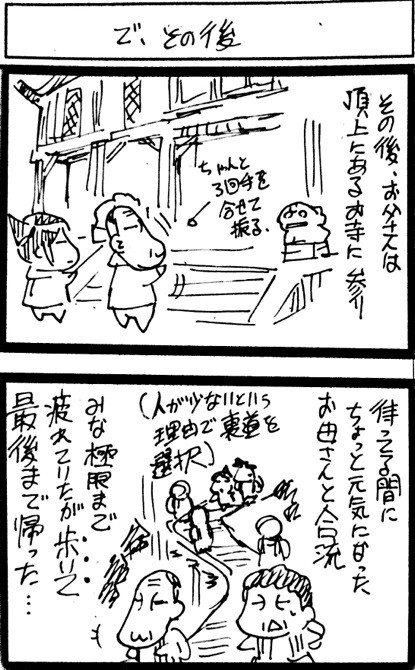 で、その後
その後、お父さんは
頂上にあるお寺に参り
ちゃんと
3回手を
合せて
振る。
待ってる間に
ちょっと元気になった
お母さんと合流
(人が少ないという
理由で裏道を
選択)
みな極限まで
疲れていたが歩いて
最後まで帰った…